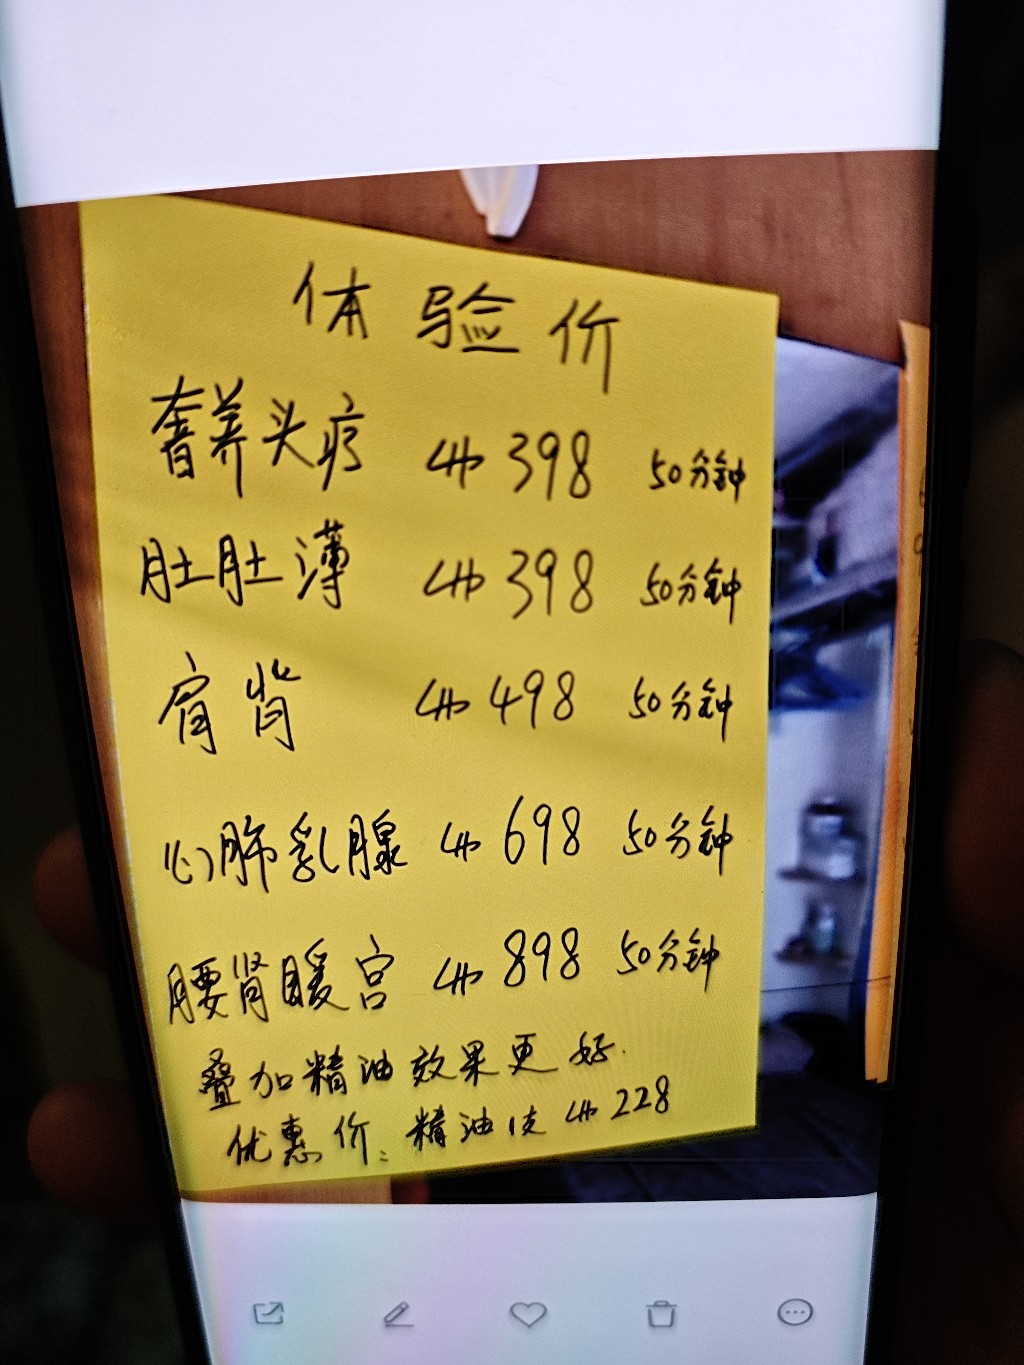 体验价
奢养头疗 398 50分钟
肚肚薄 398 50分钟
肩背 498 50分钟
心肺乳腺 698 50分钟
腰肾暖宫 898 50分钟
叠加精油效果更好.
优惠价: 精油1支 228